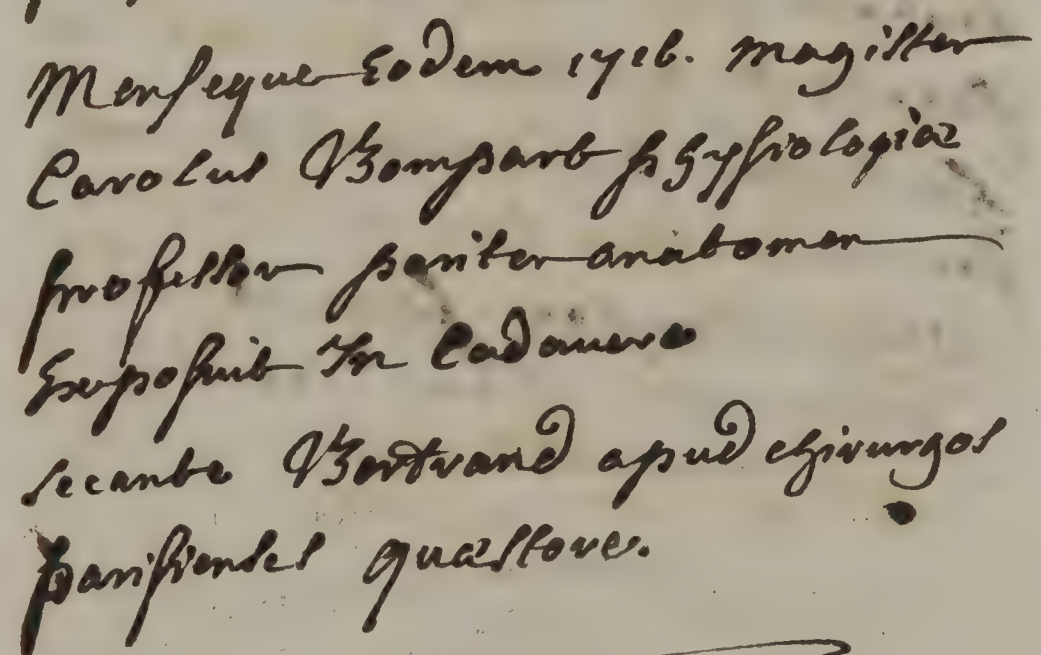 Menseque Eodem 1716. magister
Carolus Bompart physiologiæ
professor pariter anatomen
Exposuit In Cadavere
secante Bertrand apud chirurgos
parisienses quæstore.